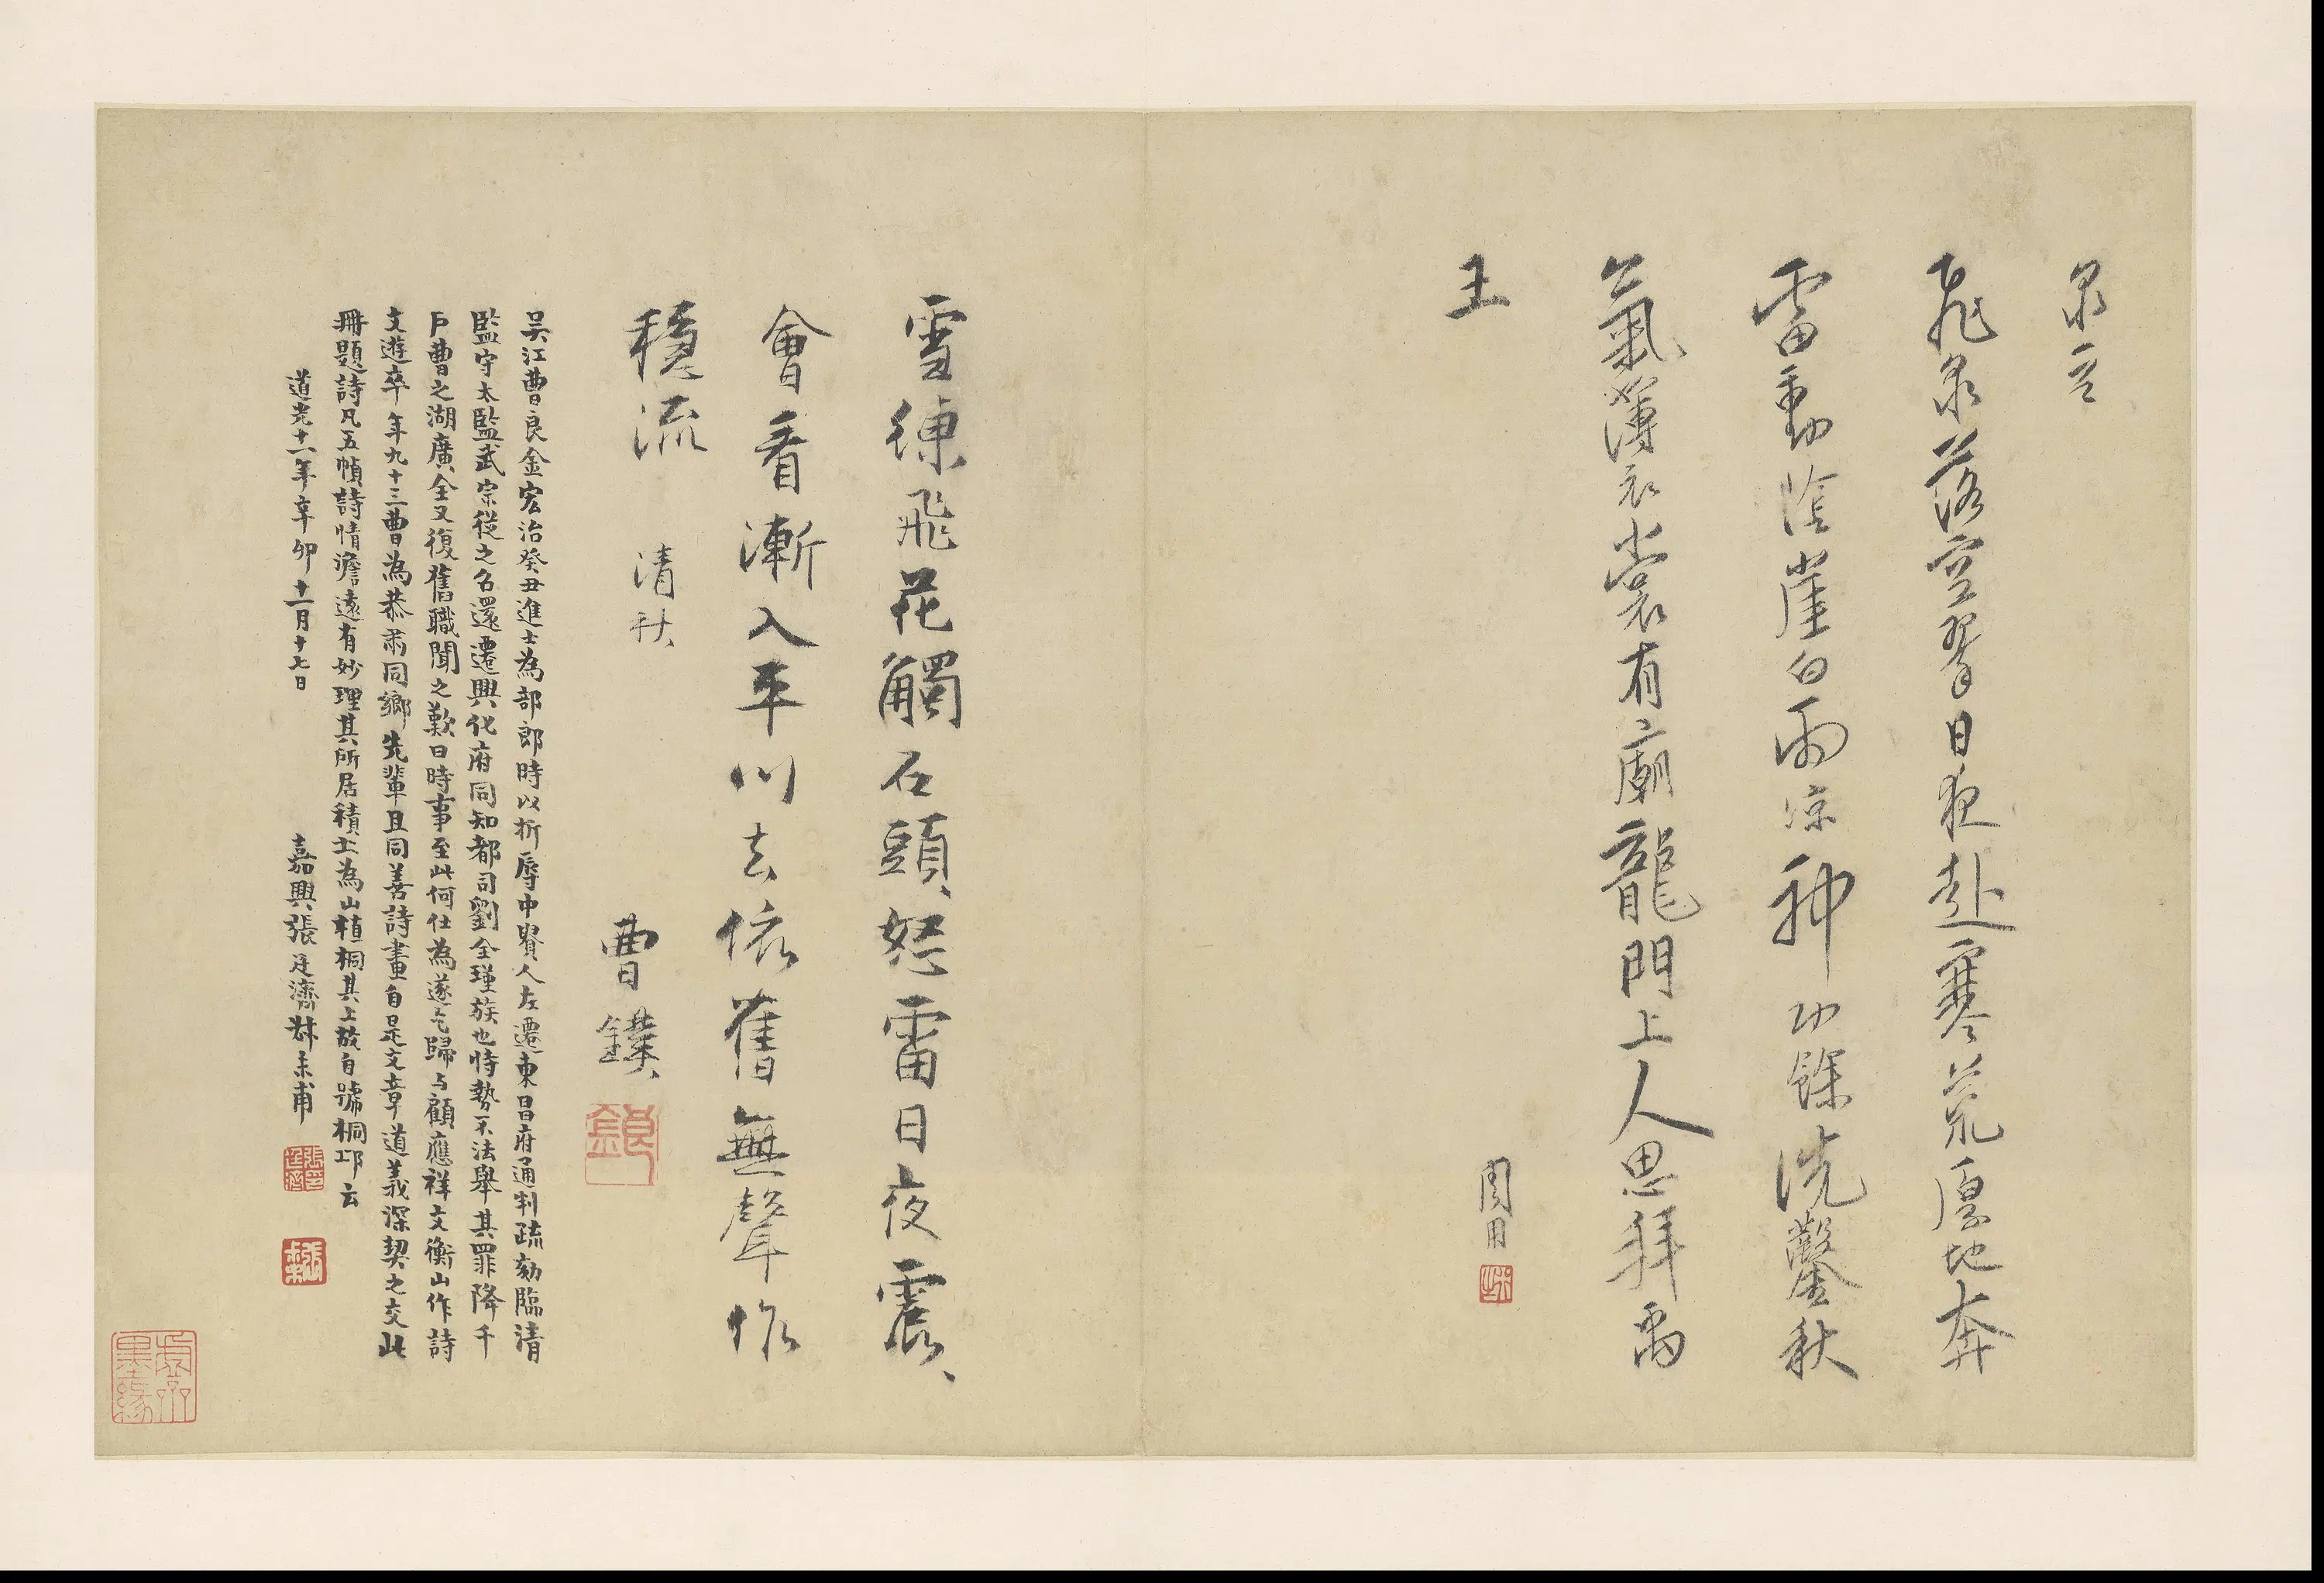 泉言
飛泉落空翠日夜赴寒荒厚地奔
雷動陰崖白雨涼神功餘洗鑿秋
氣薄衣裳有廟龍門上人思拜禹
王
周用
雪練飛花觸石頭怒雷日夜震
會看漸入平川去依舊無聲作
穩流 清秋
曹鏷
吳江曹良金宏治癸丑進士為部郎時以折辱中貴人左遷東昌府通判疏劾臨清
監守太監武宗從之名還遷興化府同知都司劉全瑾族也恃勢不法舉其罪降千
戶曹之湖廣全又復舊職聞之歎曰時事至此何仕為遂乞歸与顧應祥文衡山作詩
文遊卒年九十三曹為恭肅同鄉先輩且同善詩畫自是文章道義深契之交此
冊題詩凡五幀詩情澹遠有妙理其所居積土為山植桐其上故自號桐邱云
道光十一年辛卯十一月十七日 嘉興張廷濟叔未甫